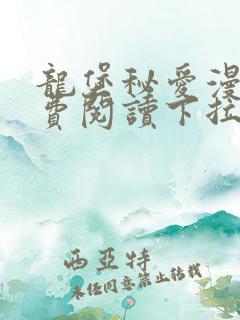 龍堡秘愛漫
費閱讀下拉
西亞特
未經同意禁止轉載